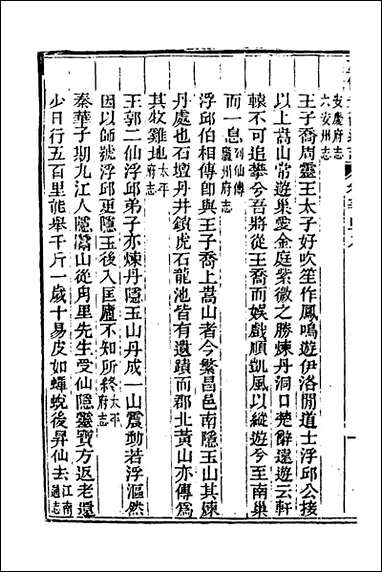 安慶府志
六安州志
王子喬周靈王太子好吹笙作鳳鳴遊伊洛閒道士浮邱公接
以上嵩山常遊巢愛金庭紫微之勝煉丹洞口楚辭遠遊云軒
轅不可追攀兮吾將從王喬而娛戲順凱風以縱遊兮至南巢
而一息列仙傳
廬州府志
浮邱伯相傳卽與王子喬上嵩山者今繁昌邑南隱玉山其煉
丹處也石壇丹井鎖虎石龍池皆有遺蹟而郡北黃山亦傳爲
其牧雞地太平
府志
王郭二仙浮邱弟子亦煉丹隱玉山丹成一山震動若浮漚然
因以師號浮邱更隱玉後入匡廬不知所終太平
府志
秦華子期九江人隱嵩山從甪里先生受仙隱靈寶方返老還
少日行五百里能舉千斤一歲十易皮如蟬蛻後昇仙去江南
通志